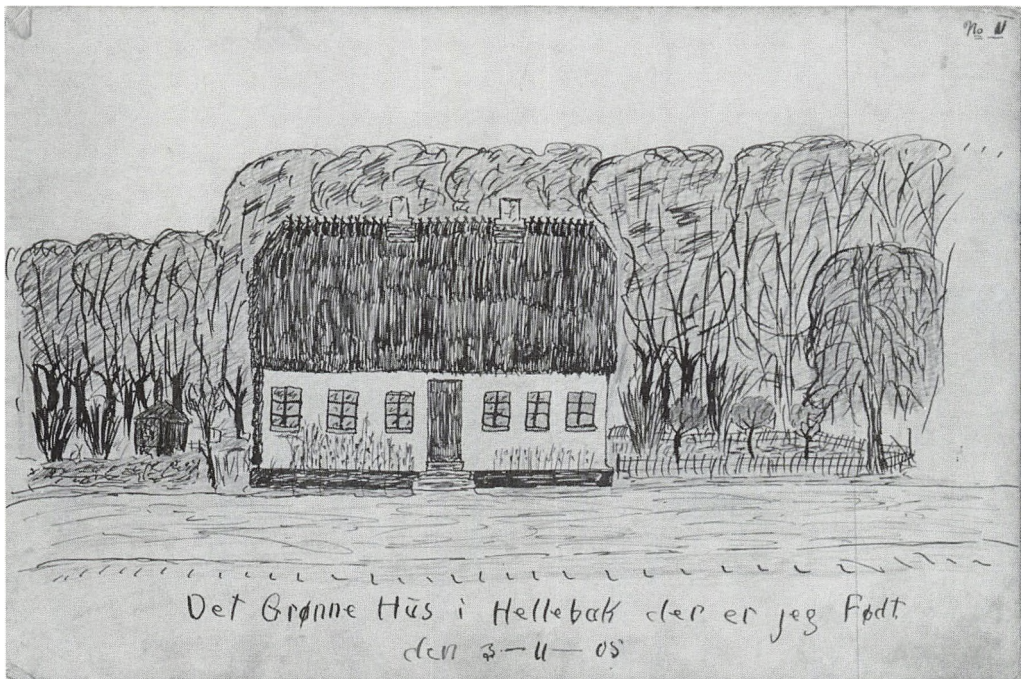 No 11
Det Grønne Hūs i Hellebak der er jeg Født
den 3-11-05